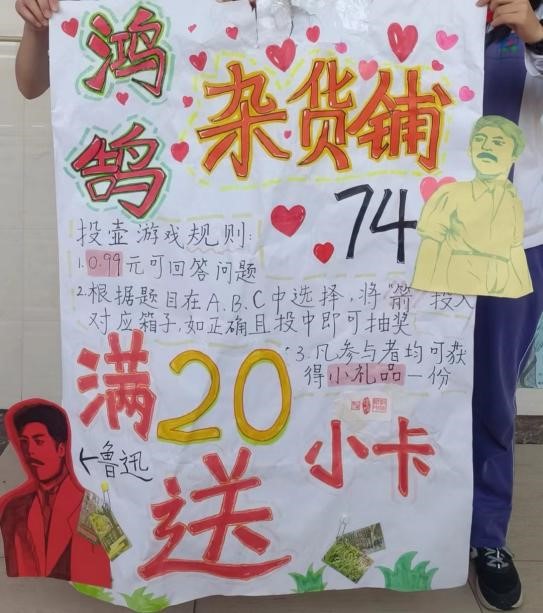 鸿鹄
杂货铺
74
投壶游戏规则:
1.0.99元可回答问题
2.根据题目在A.B.C中选择,将"箭"投入
对应箱子,如正确且投中即可抽奖
3.凡参与者均可获
得小礼品一份
满20
送
小卡
←鲁迅